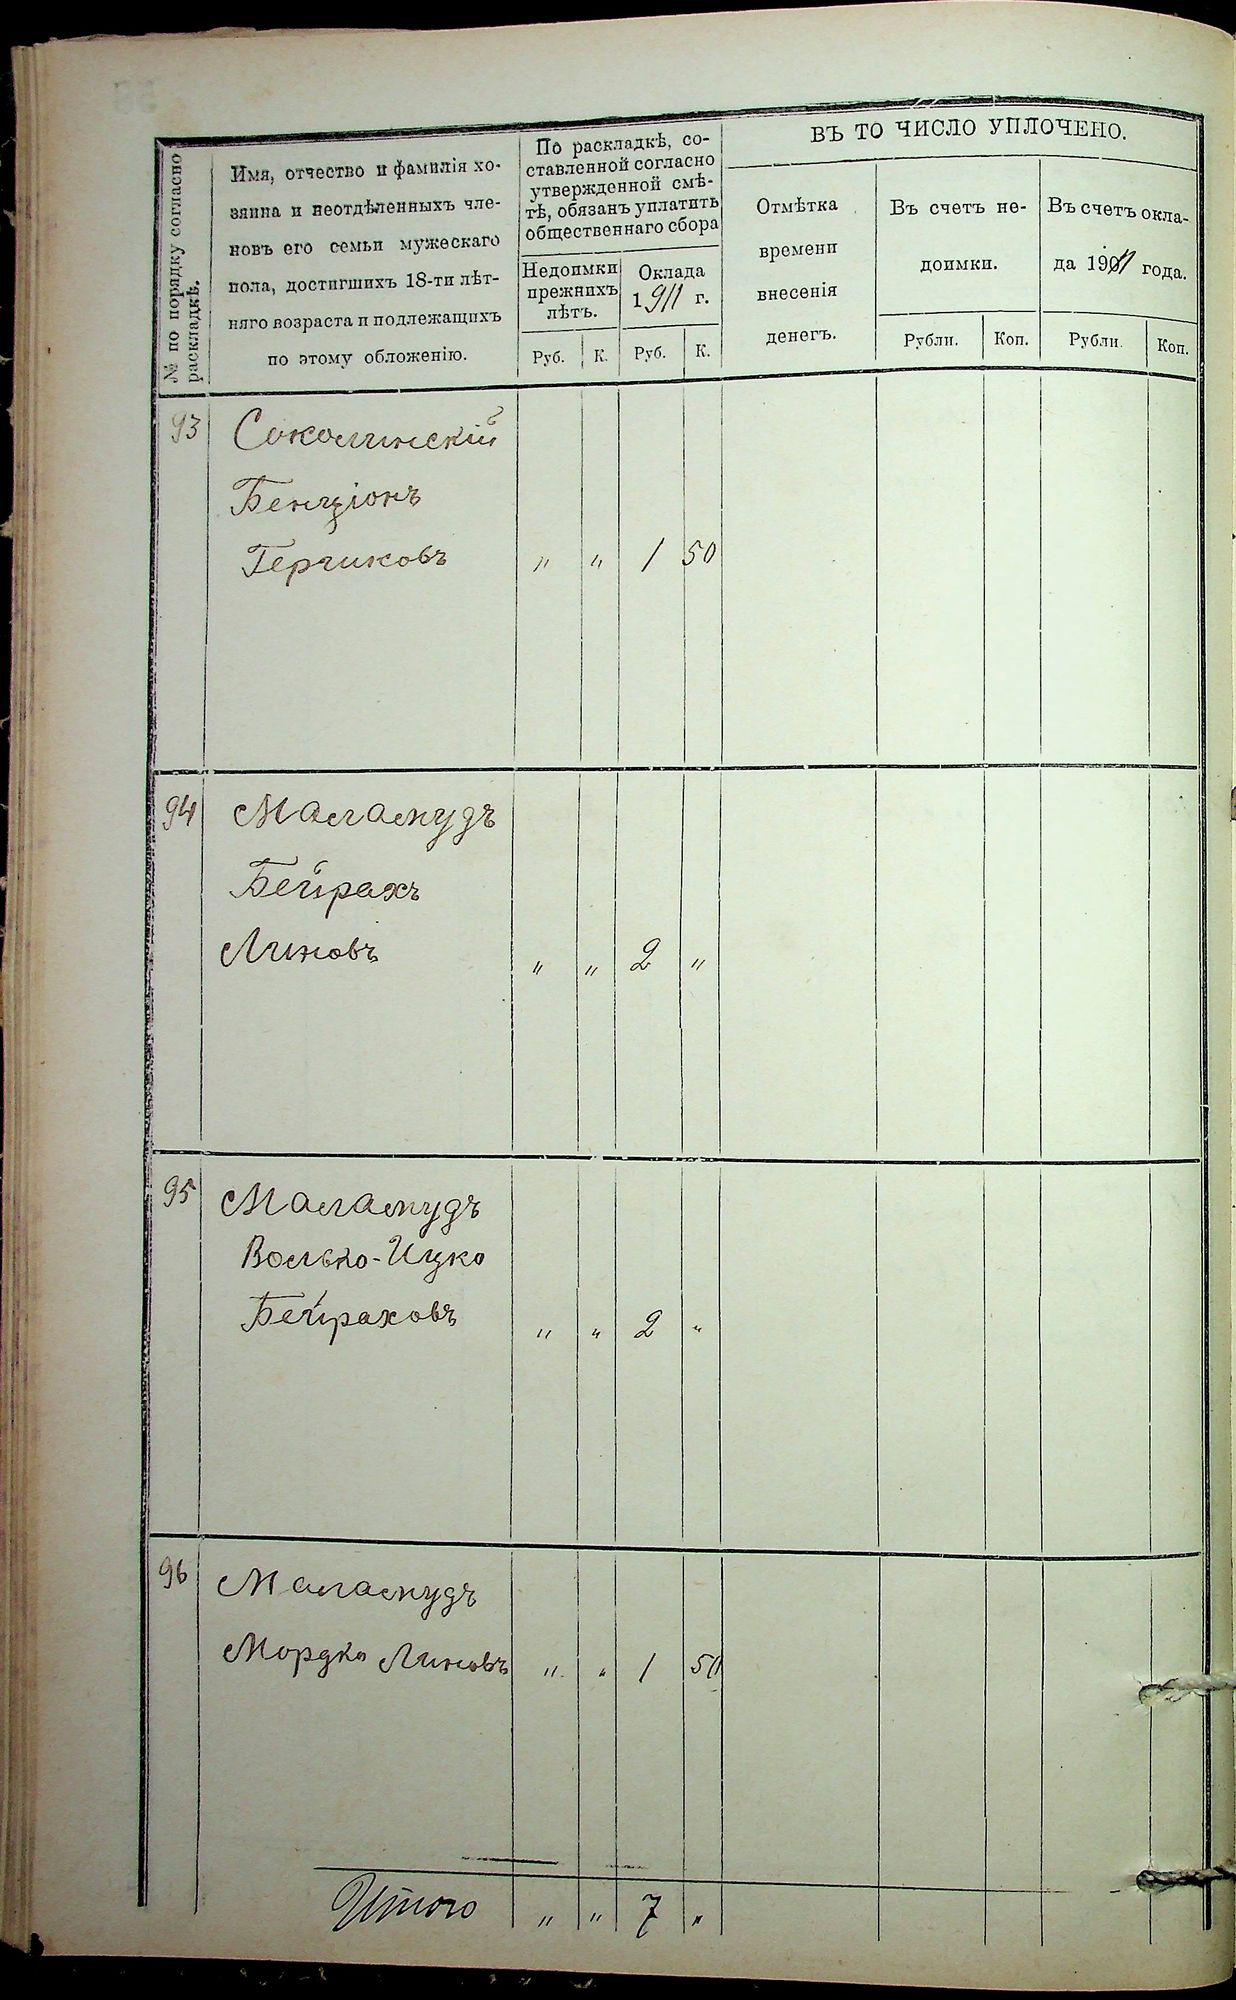 № по порядку согласно
раскладкѣ.
Имя, отчество и фамилія хо-
зяина и неотдѣленныхъ чле-
новъ его семьи мужескаго
пола, достигшихъ 18-ти лѣт-
няго возраста и подлежащихъ
по этому обложенію.
По раскладкѣ, со-
ставленной согласно
утвержденной смѣ-
тѣ, обязанъ уплатить
общественнаго сбора
Недоимки
прежнихъ
лѣтъ.
Оклада
1911 г.
Руб. К. Руб. К.
ВЪ ТО ЧИСЛО УПЛОЧЕНО.
Отмѣтка
времени
внесенія
денегъ.
Въ счетъ не-
доимки.
Въ счетъ окла-
да 1911 года.
Рубли. Коп. Рубли. Коп.
93 Соколинскій
Бенціонъ
Герчиковъ " " 1 50
94 Маламудъ
Бейрахъ
Линовъ " " 2 "
95 Маламудъ
Волько-Ицко
Бейраховъ " " 2 "
96 Маламудъ
Мордко Линовъ " " 1 50
Итого " " 7 "